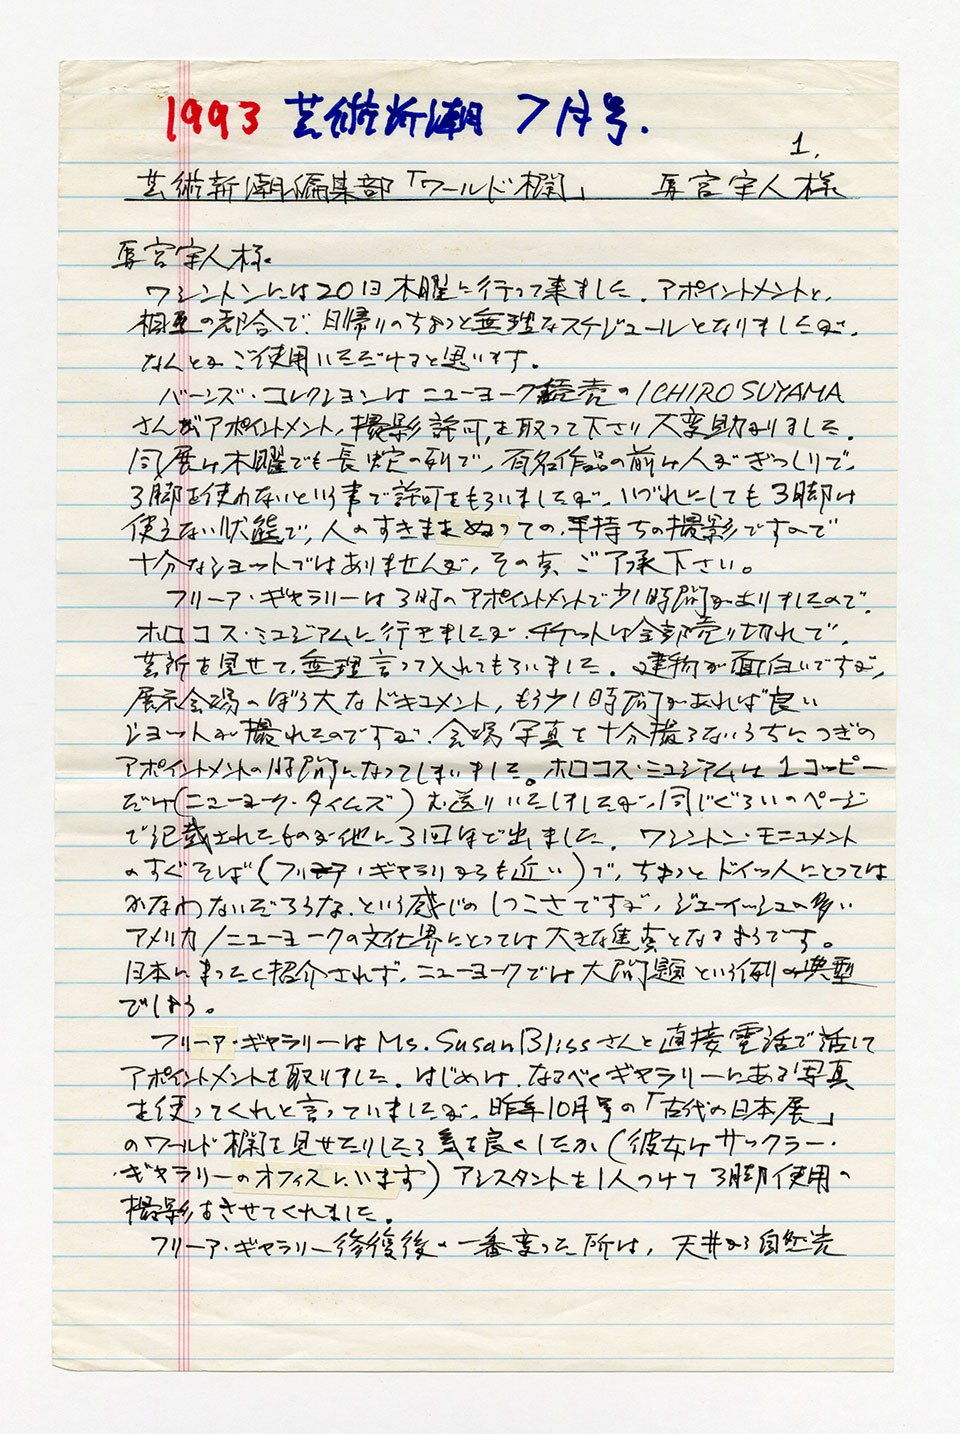 1993 芸術新潮 7月号.
1.
芸術新潮編集部「ワールド欄」 宮宇人様
宮宇人様
ワシントンには20日木曜に行って来ました。アポイントメントと、
相互の都合で、日帰りのちょっと無理なスケジュールとなりましたが、
なんとかご使用いただけると思います。
バーンズ・コレクションはニューヨーク読売のICHIRO SUYAMA
さんがアポイントメント、撮影許可を取って下さり大変助かりました。
同展は木曜でも長蛇の列で、有名作品の前は人がぎっしりで、
3脚を使わないという事で許可をもらいましたが、いづれにしても3脚は
使えない状態で、人のすきまをぬっての、手持ちの撮影ですので
十分なショットではありませんが、その点、ご了承下さい。
フリーア・ギャラリーは3時のアポイントメントで少し時間がありましたので、
ホロコス・ミュジアムに行きましたが、チケットは全部売り切れで、
芸新を見せて、無理言って入れてもらいました。建物が面白いですが、
展示会場のぼう大なドキュメント、もう少し時間があれば良い
ショットが撮れたのですが、会場写真を十分撮らないうちにつぎの
アポイントメントの時間になってしまいました。ホロコス・ミュジアムは1コッピー
だけ(ニューヨーク・タイムズ)お送りいたしましたが、同じぐらいのページ
で記載されたものが他に3回ほど出ました。ワシントン・モニュメント
のすぐそば(フリーア・ギャラリからも近い)で、ちょっとドイツ人にとっては
かなわないだろうな、という感じのしつこさですが、ジューイッシュの多い
アメリカ/ニューヨークの文化界にとっては大きな焦点となるようです。
日本にまったく紹介されず、ニューヨークでは大問題という例の典型
でしょう。
フリーア・ギャラリーはMs. Susan Blissさんと直接電話で話して
アポイントメントを取りました。はじめは、なるべくギャラリーにある写真
を使ってくれと言っていましたが、昨年10月号の「古代の日本展」
のワールド欄を見せたりしたら気を良くしたか(彼女はサックラー・
・ギャラリーのオフィスにいます)アシスタントを1人つけて3脚使用の
撮影をさせてくれました。
フリーア・ギャラリー修復後の一番変った所は、天井から自然光